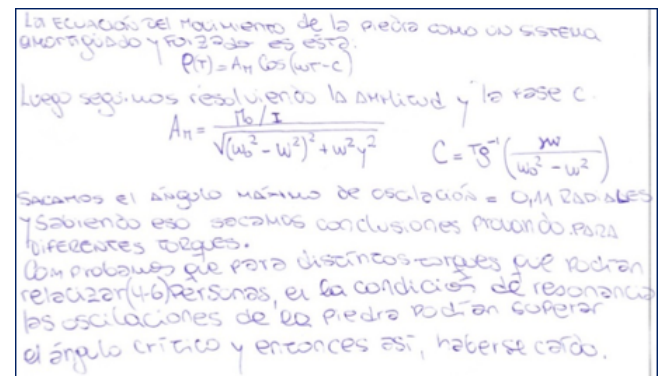 La ecuación del movimiento de la piedra como un sistema
amortiguado y forzado es esta.
φ(t) = A_M Cos(ωt-c)
Luego seguimos resolviendo la amplitud y la fase C.
A_M = (M_0/I) / √((ω_0² - ω²)² + ω²γ²)    C = Tg⁻¹(γω / (ω_0² - ω²))
Sacamos el ángulo máximo de oscilación = 0,11 RADIALES
y sabiendo eso sacamos conclusiones probando para
diferentes torques.
Comprobamos que para distintos torques que podían
relacizar (4-6) personas, en la condición de resonancia
las oscilaciones de la piedra podían superar
el ángulo crítico y entonces así, haberse caído.